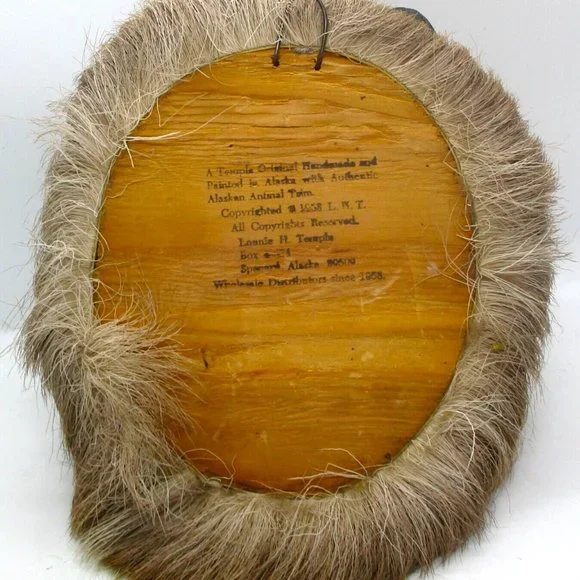 A Temple Original Handmade and
Painted in Alaska with Authentic
Alaskan Animal Trim.
Copyrighted 1958 L. N. T.
All Copyrights Reserved.
Lonnie H. Temple
Box
Alaska
Wholesale Distributors since 1958.